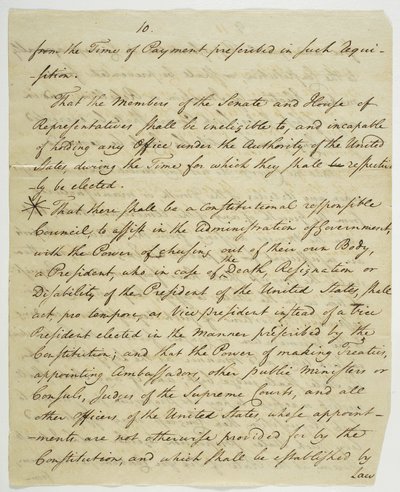 10.
from the Time of Payment prescribed in such Requi-
-sition.
That the Members of the Senate and House of
Representatives shall be ineligible to, and incapable
of holding any Office under the Authority of the United
States, during the Time for which they shall be respective
ly be elected.
That there shall be a Constitutional responsible
Council, to assist in the Administration of Government,
with the Power of chusing out of their own Body,
a President, who in case of the Death, Resignation or
Disability of the President of the United States, shall
act pro tempore, as Vice President instead of a Vice
President elected in the Manner prescribed by the
Constitution; and that the Power of making Treaties,
appointing Ambassadors, other public Ministers or
Consuls, Judges of the Supreme Courts, and all
other Officers of the United States, whose appoint-
-ments are not otherwise provided for by the
Constitution, and which shall be established by
Law